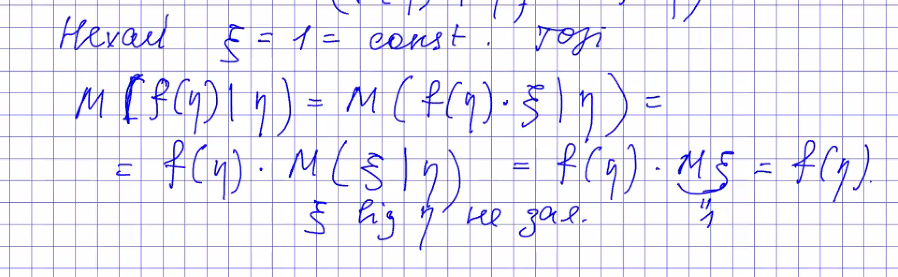 Нехай ξ = 1 = const. Тоді
M(f(η)|η) = M(f(η)·ξ|η) =
= f(η)·M(ξ|η) = f(η)·Mξ = f(η).
ξ від η не зал. "1